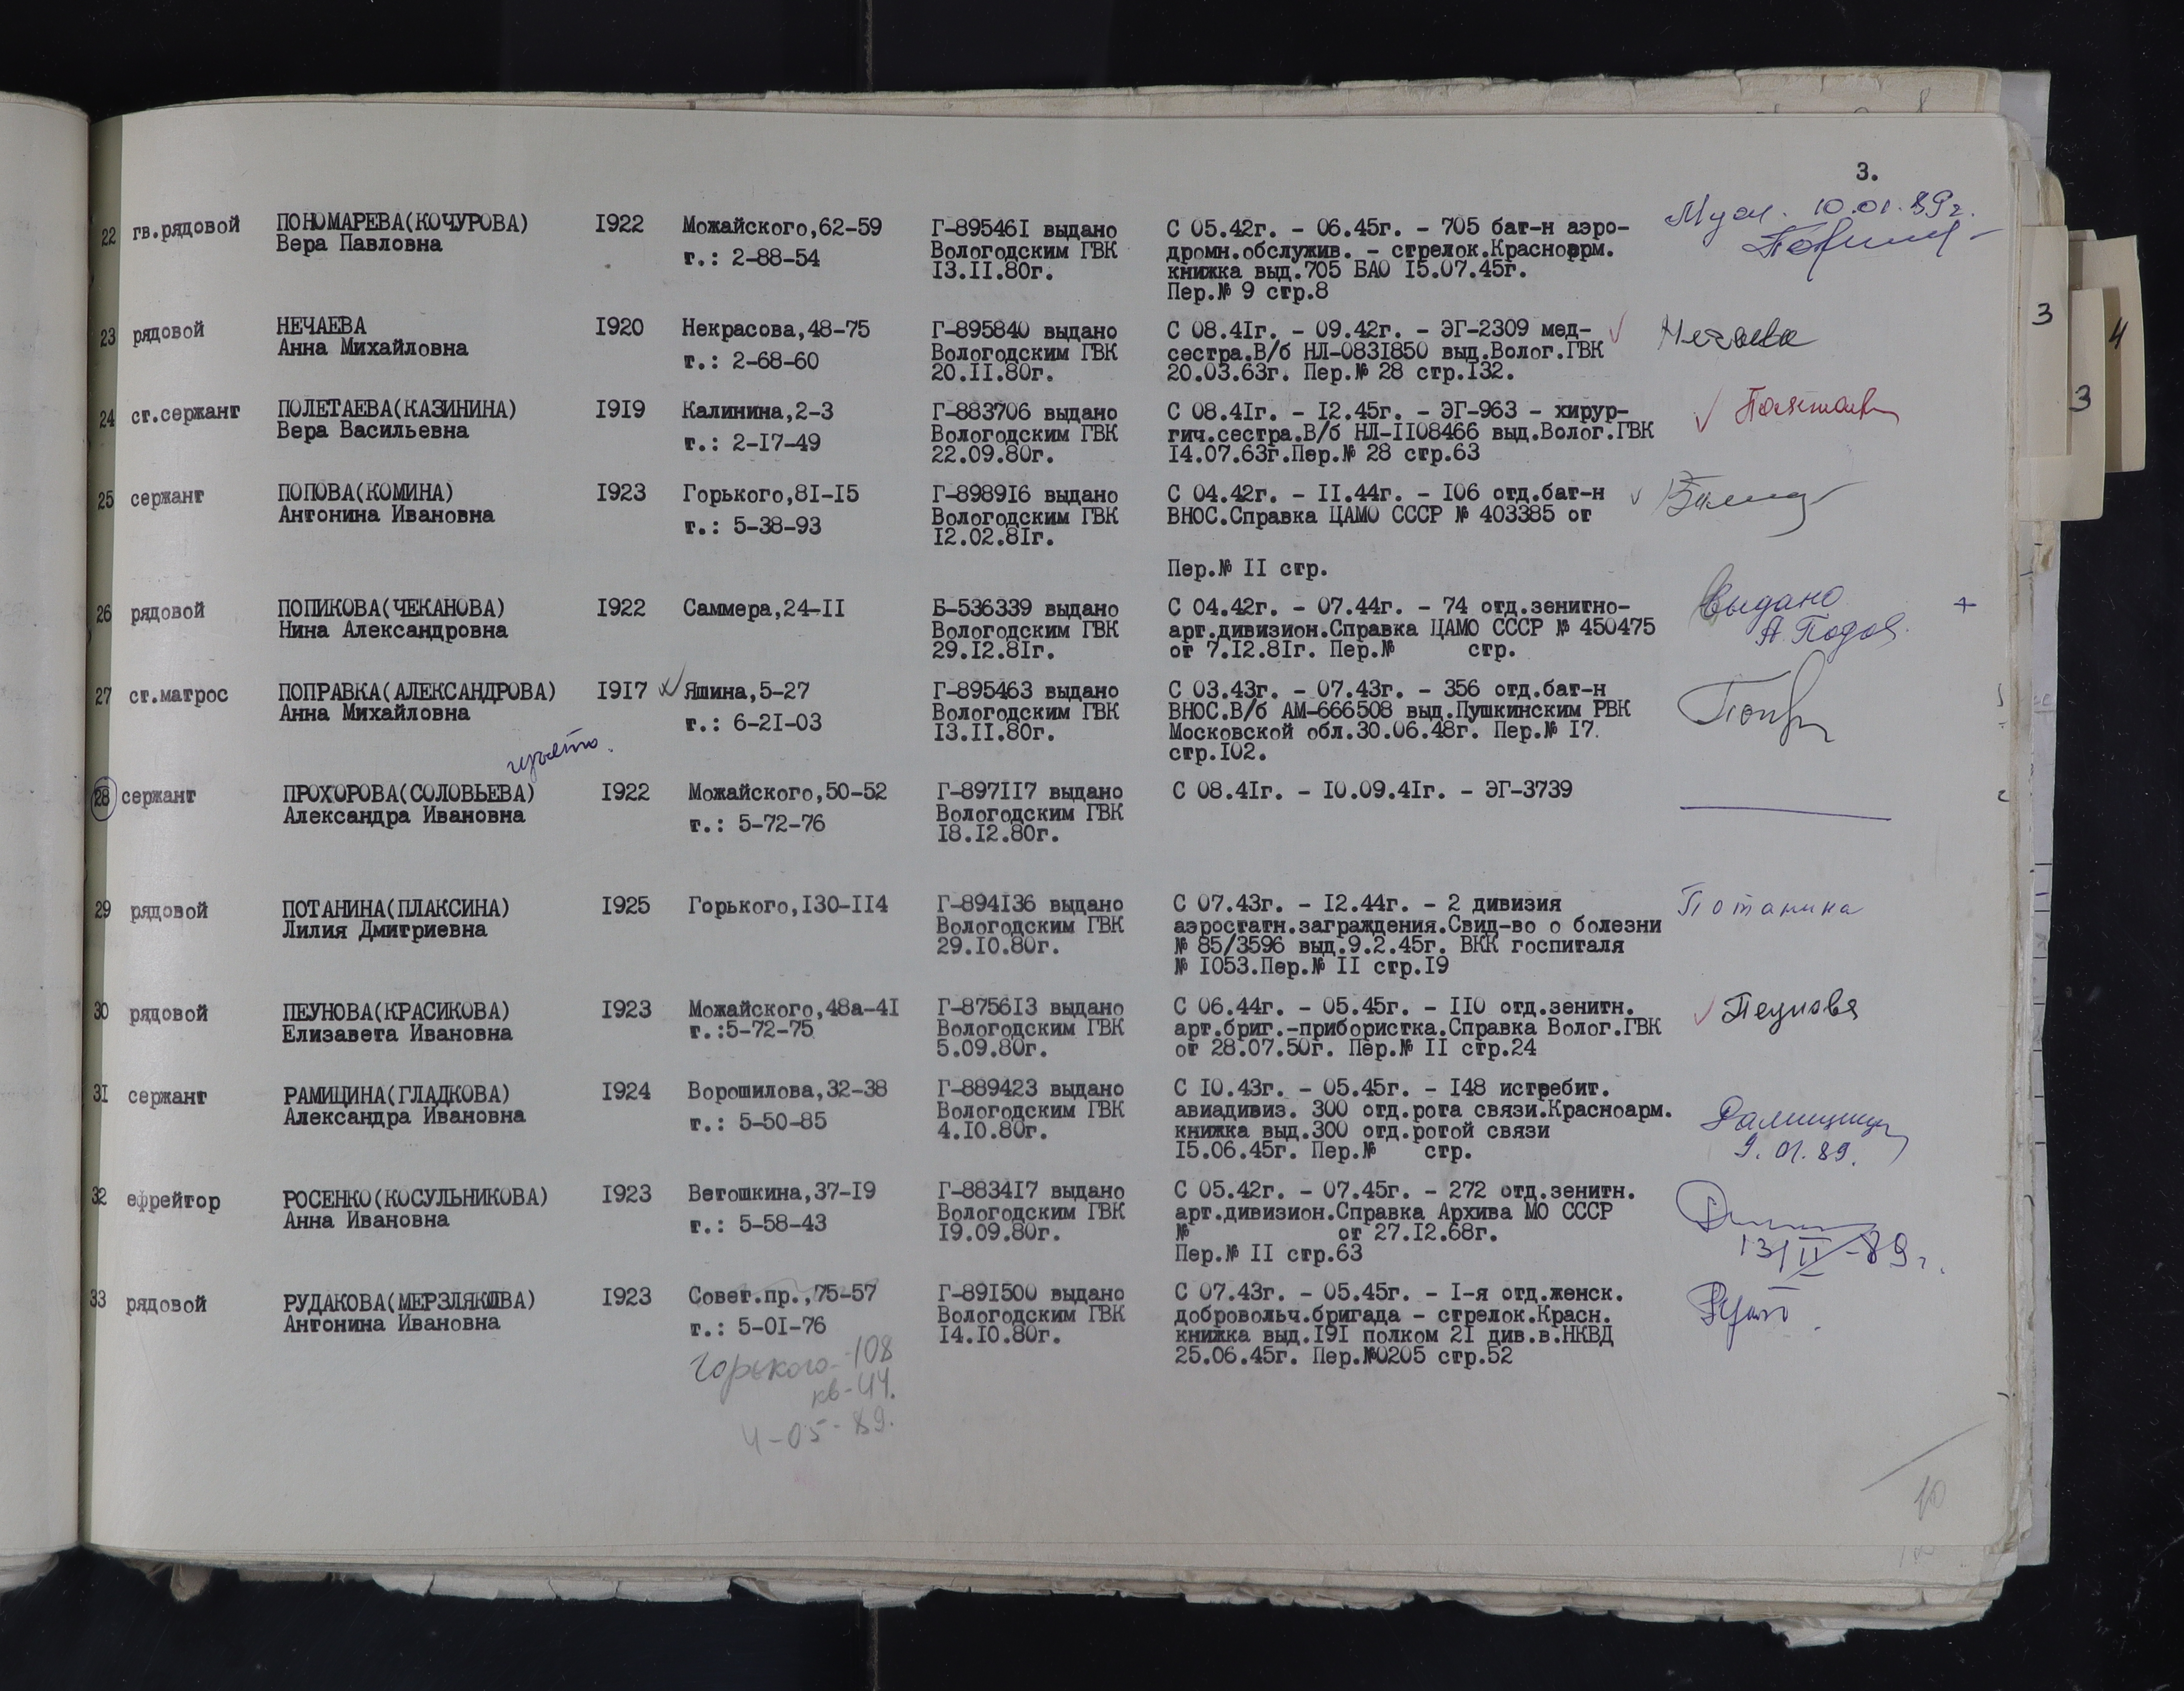 3.
22 гв.рядовой ПОНОМАРЕВА(КОЧУРОВА) I922 Можайского,62-59 Г-89546I выдано С 05.42г. - 06.45г. - 705 бат-н аэро-
Вера Павловна т.: 2-88-54 Вологодским ГВК дромн.обслужив. - стрелок.Красноарм.
I3.II.80г. книжка выд.705 БАО I5.07.45г.
Пер.№ 9 стр.8
10.01.89г.
23 рядовой НЕЧАЕВА I920 Некрасова,48-75 Г-895840 выдано С 08.4Iг. - 09.42г. - ЭГ-2309 мед- Нечаева
Анна Михайловна т.: 2-68-60 Вологодским ГВК сестра.В/б НЛ-083I850 выд.Волог.ГВК
20.II.80г. 20.03.63г. Пер.№ 28 стр.I32.
24 ст.сержант ПОЛЕТАЕВА(КАЗИНИНА) I9I9 Калинина,2-3 Г-883706 выдано С 08.4Iг. - I2.45г. - ЭГ-963 - хирур-
Вера Васильевна т.: 2-I7-49 Вологодским ГВК гич.сестра.В/б НЛ-II08466 выд.Волог.ГВК
22.09.80г. I4.07.63г.Пер.№ 28 стр.63
25 сержант ПОПОВА(КОМИНА) I923 Горького,8I-I5 Г-8989I6 выдано С 04.42г. - II.44г. - I06 отд.бат-н
Антонина Ивановна т.: 5-38-93 Вологодским ГВК ВНОС.Справка ЦАМО СССР № 403385 от
I2.02.8Iг.
Пер.№ II стр.
26 рядовой ПОПИКОВА(ЧЕКАНОВА) I922 Саммера,24-II Б-536339 выдано С 04.42г. - 07.44г. - 74 отд.зенитно- Выдано +
Нина Александровна Вологодским ГВК арт.дивизион.Справка ЦАМО СССР № 450475
29.I2.8Iг. от 7.I2.8Iг. Пер.№ стр.
27 ст.матрос ПОПРАВКА(АЛЕКСАНДРОВА) I9I7 Яшина,5-27 Г-895463 выдано С 03.43г. - 07.43г. - 356 отд.бат-н
Анна Михайловна т.: 6-2I-03 Вологодским ГВК ВНОС.В/б АМ-666508 выд.Пушкинским РВК
I3.II.80г. Московской обл.30.06.48г. Пер.№ I7.
стр.I02.
изъято.
28 сержант ПРОХОРОВА(СОЛОВЬЕВА) I922 Можайского,50-52 Г-897II7 выдано С 08.4Iг. - I0.09.4Iг. - ЭГ-3739
Александра Ивановна т.: 5-72-76 Вологодским ГВК
I8.I2.80г.
29 рядовой ПОТАНИНА(ПЛАКСИНА) I925 Горького,I30-II4 Г-894I36 выдано С 07.43г. - I2.44г. - 2 дивизия Потанина
Лилия Дмитриевна Вологодским ГВК аэростатн.заграждения.Свид-во о болезни
29.I0.80г. № 85/3596 выд.9.2.45г. ВКК госпиталя
№ I053.Пер.№ II стр.I9
30 рядовой ПЕУНОВА(КРАСИКОВА) I923 Можайского,48а-4I Г-8756I3 выдано С 06.44г. - 05.45г. - II0 отд.зенитн. Пеунова
Елизавета Ивановна т.:5-72-75 Вологодским ГВК арт.бриг.-прибористка.Справка Волог.ГВК
5.09.80г. от 28.07.50г. Пер.№ II стр.24
3I сержант РАМИЦИНА(ГЛАДКОВА) I924 Ворошилова,32-38 Г-889423 выдано С I0.43г. - 05.45г. - I48 истребит.
Александра Ивановна т.: 5-50-85 Вологодским ГВК авиадивиз. 300 отд.рота связи.Красноарм.
4.I0.80г. книжка выд.300 отд.ротой связи
I5.06.45г. Пер.№ стр. 9.01.89.
32 ефрейтор РОСЕНКО(КОСУЛЬНИКОВА) I923 Ветошкина,37-I9 Г-8834I7 выдано С 05.42г. - 07.45г. - 272 отд.зенитн.
Анна Ивановна т.: 5-58-43 Вологодским ГВК арт.дивизион.Справка Архива МО СССР
I9.09.80г. № от 27.I2.68г.
Пер.№ II стр.63 13/II-89г.
33 рядовой РУДАКОВА(МЕРЗЛЯКОВА) I923 Совет.пр.,75-57 Г-89I500 выдано С 07.43г. - 05.45г. - I-я отд.женск.
Антонина Ивановна т.: 5-0I-76 Вологодским ГВК добровольч.бригада - стрелок.Красн.
I4.I0.80г. книжка выд.I9I полком 2I див.в.НКВД
25.06.45г. Пер.№0205 стр.52
Горького-108
кв-44.
4-05-89.
10
3
4
3